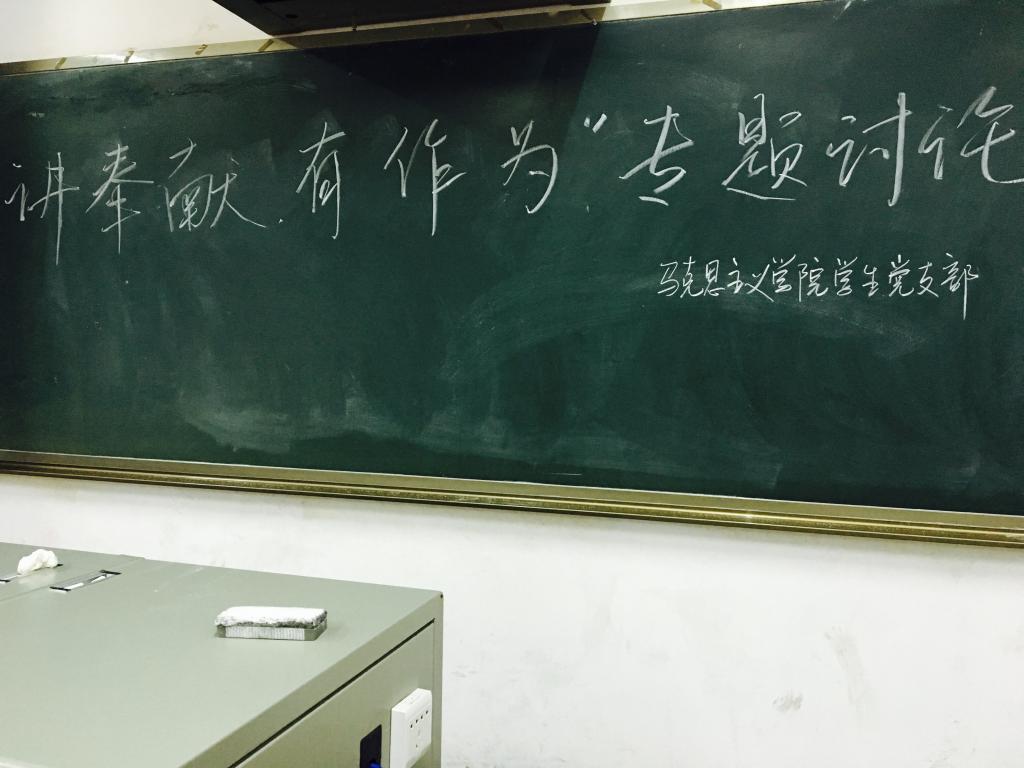 讲奉献.有作为"专题讨论
马克思主义学院学生党支部